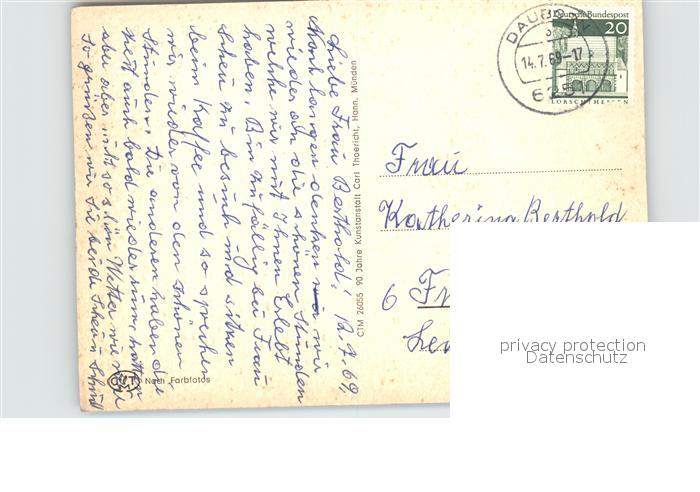 Liebe Frau Berthold! 12.7.69,
Noch langen denken wir
wieder an die schönen Stunden
welche wir mit Ihnen Erlebt
haben. Bin zufällig bei Frau
zu besuch und sitzen
beim Kaffee und so sprechen
wir wieder von den schönen
Stunden. Die anderen haben die
Zeit auch bald wieder rum, hatten
aber nicht so schön Wetter wie
So grüßen wir Sie beide
© Nach Farbfotos
CTM 26055 90 Jahre Kunstanstalt Carl Thoericht, Hann. Münden
DAUBO
14.7.69-17
Deutsche Bundespost
20
LORSCH HESSEN
Frau
Katharina Berthold
6 Fr
privacy protection
Datenschutz